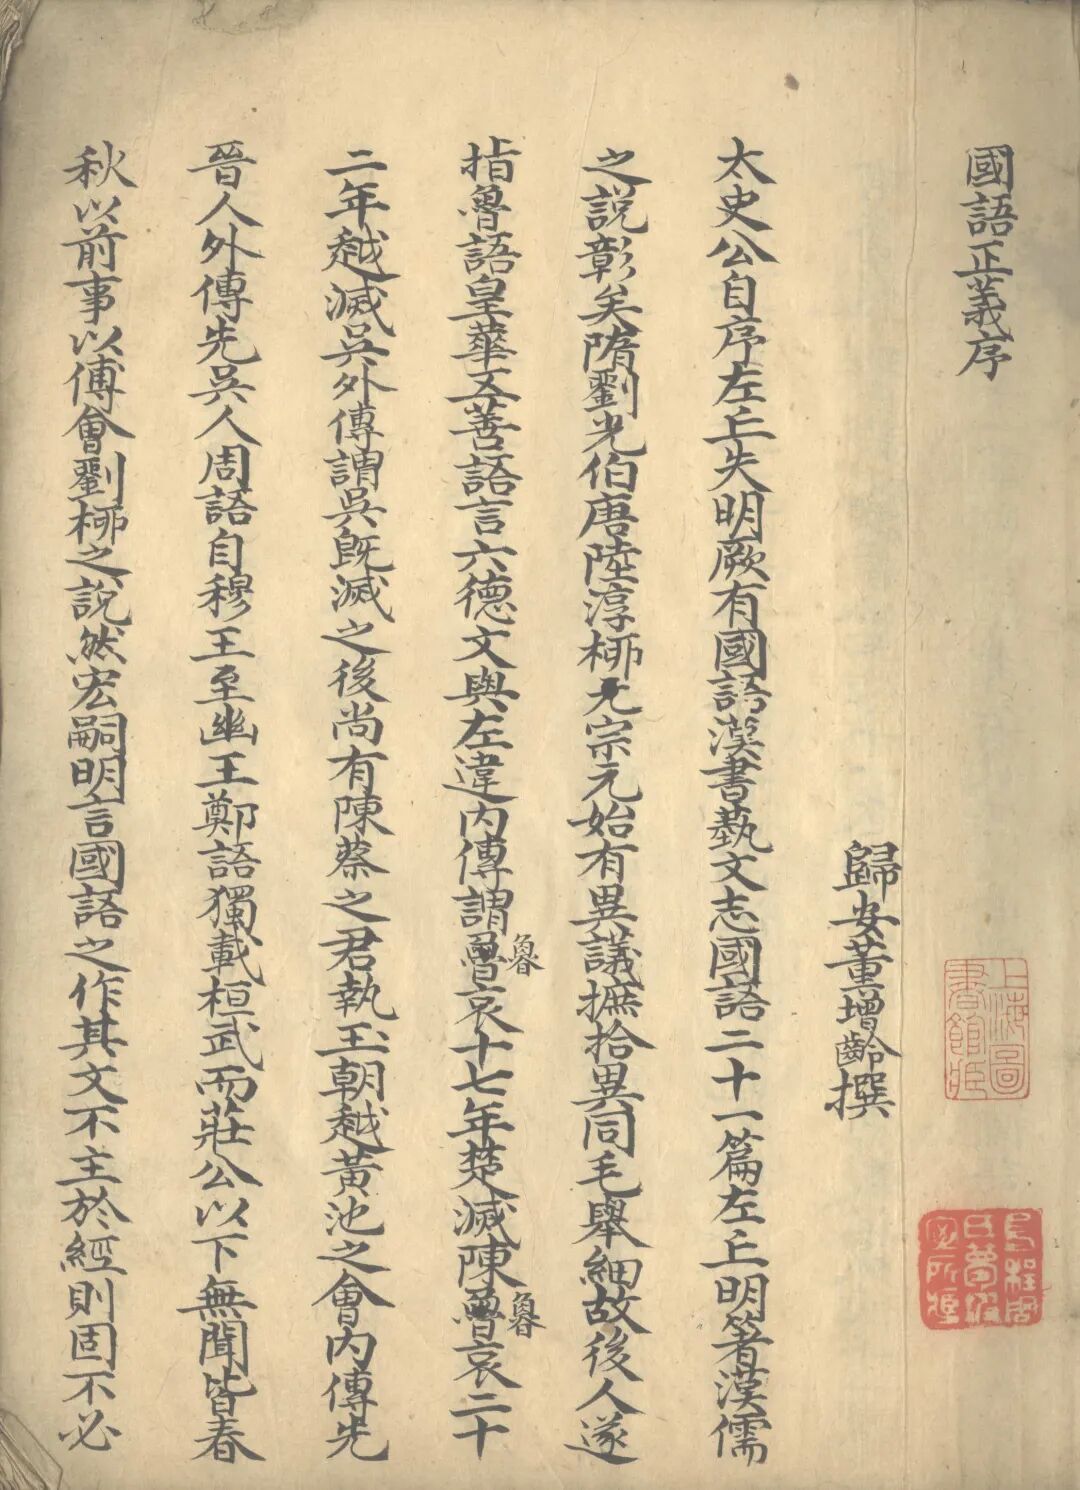 國語正義序
上海圖書館藏
烏程周氏夢坡室所藏
歸安董增齡撰
太史公自序左丘失明厥有國語漢書藝文志國語二十一篇左丘明箸漢儒
之説彰矣隋劉光伯唐陸淳柳元宗元始有異議摭拾異同毛舉細故後人遂
指魯語皇華五善語言六德文與左違內傳謂魯哀十七年楚滅陳魯哀二十
魯
魯
二年越滅吳外傳謂吳既滅之後尚有陳蔡之君執玉朝越黃池之會內傳先
晉人外傳先吳人周語自穆王至幽王鄭語獨載桓武而莊公以下無聞皆春
秋以前事以傅會劉柳之說然宏嗣明言國語之作其文不主於經則固不必